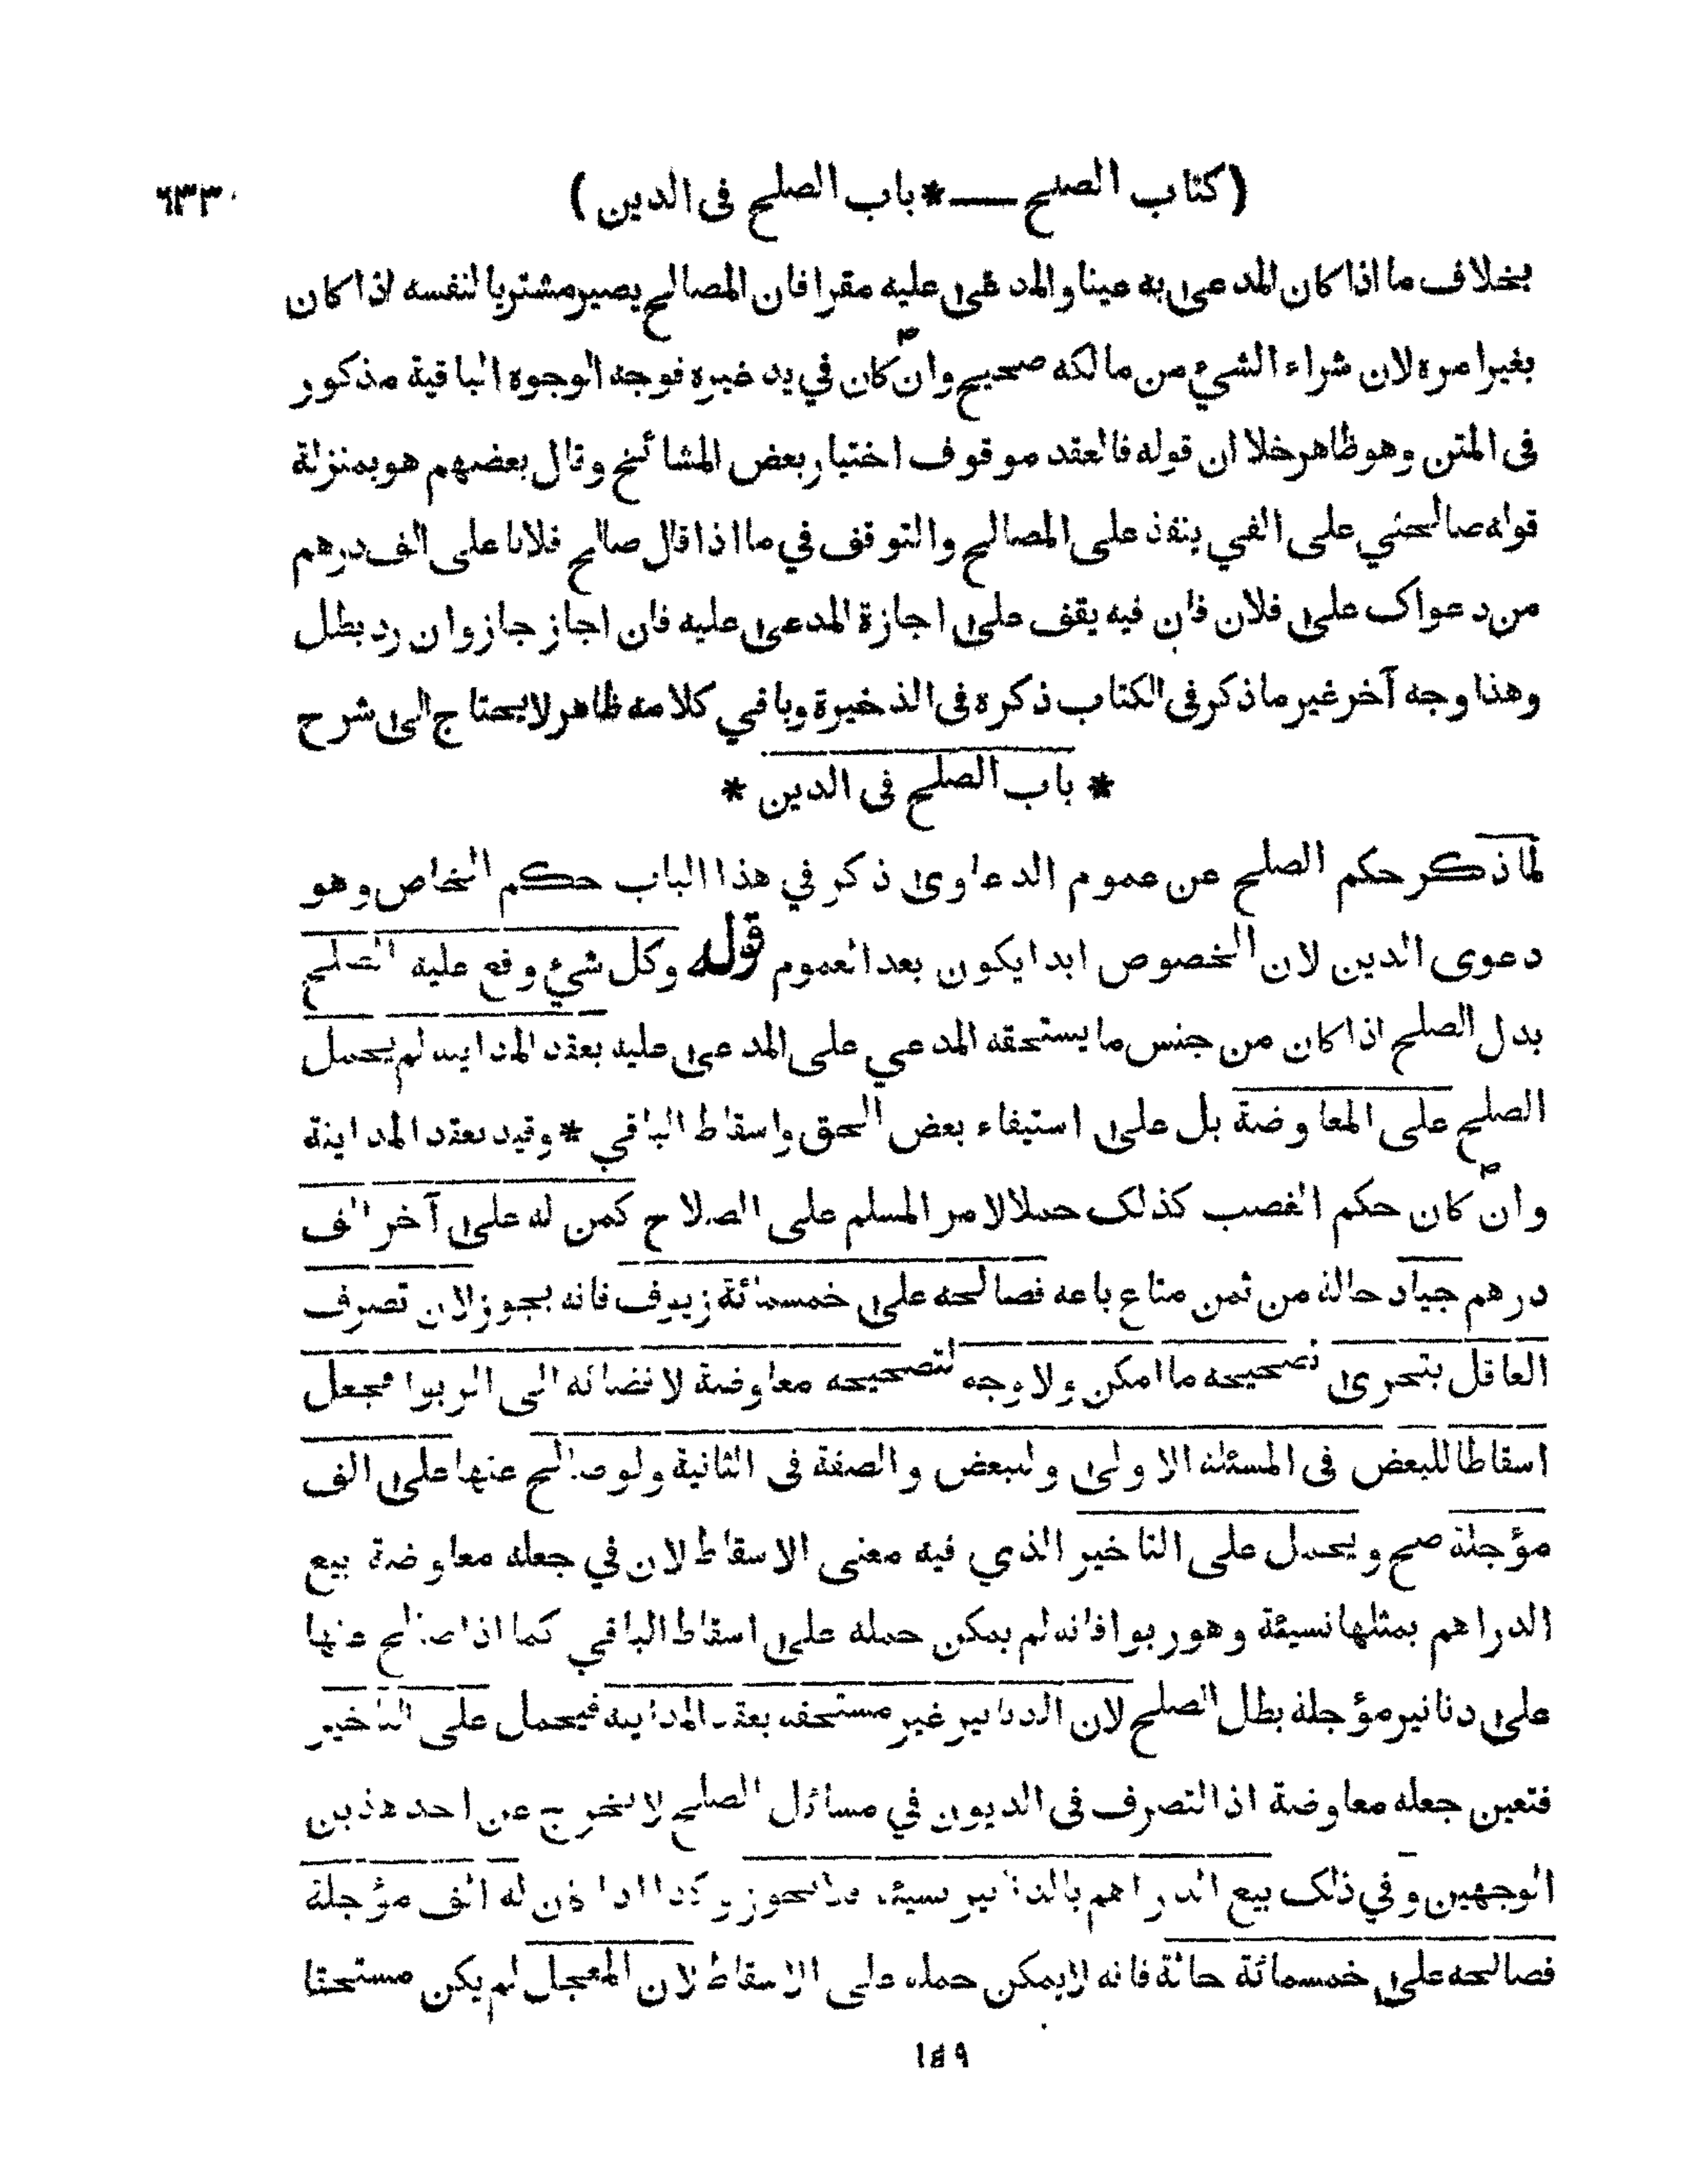 (كتاب الصلح — * باب الصلح فى الدين) ٦٣٣
بخلاف ما اذا كان المدعى به عينا والمدعى عليه مقرا فان المصالح يصير مشتريا لنفسه اذا كان
بغير امره لان شراء الشيء من مالكه صحيح وان كان في يد غيره فوجه الوجوه الباقية مذكور
فى المتن وهو ظاهر خلا ان قوله فالعقد موقوف اختيار بعض المشائخ وقال بعضهم هو بمنزلة
قوله صالحني على الفي ينفذ على المصالح والتوقف في ما اذا قال صالح فلانا على الف درهم
من دعواک على فلان فان فيه يقف على اجازة المدعى عليه فان اجاز جاز وان رد بطل
وهذا وجه آخر غير ما ذكر فى الكتاب ذكره فى الذخيرة وباقي كلامه ظاهر لا يحتاج الى شرح
* باب الصلح فى الدين *
لما ذكر حكم الصلح عن عموم الدعاوى ذكر في هذا الباب حكم الخاص وهو
دعوى الدين لان الخصوص ابدا يكون بعد العموم قوله وكل شيء وقع عليه الصلح
بدل الصلح اذا كان من جنس ما يستحقه المدعي على المدعى عليه بعقد المداينة لم يحمل
الصلح على المعاوضة بل على استيفاء بعض الحق واسقاط الباقي * وقيد بعقد المداينة
وان كان حكم الغصب كذلک حملا لامر المسلم على الصلاح كمن له على آخر الف
درهم جياد حالة من ثمن متاع باعه فصالحه على خمسمائة زيوف فانه يجوز لان تصرف
العاقل يتحرى تصحيحه ما امكن ولا وجه لتصحيحه معاوضة لافضائه الى الربوا فجعل
اسقاطا للبعض فى المسئلة الاولى وللبعض والصفة فى الثانية ولو صالح عنها على الف
مؤجلة صح ويحمل على التاخير الذي فيه معنى الاسقاط لان في جعله معاوضة بيع
الدراهم بمثلها نسيئة وهو ربوا فانه لم يمكن حمله على اسقاط الباقي كما اذا صالح عنها
على دنانير مؤجلة بطل الصلح لان الدنانير غير مستحقة بعقد المداينة فيحمل على التاخير
فتعين جعله معاوضة اذ التصرف فى الديون في مسائل الصلح لا يخرج عن احد هذين
الوجهين وفي ذلک بيع الدراهم بالدنانير نسيئة فلا يجوز وكذا اذا كان له الف مؤجلة
فصالحه على خمسمائة حالة فانه لا يمكن حمله على الاسقاط لان المعجل لم يكن مستحقا
١٥٩